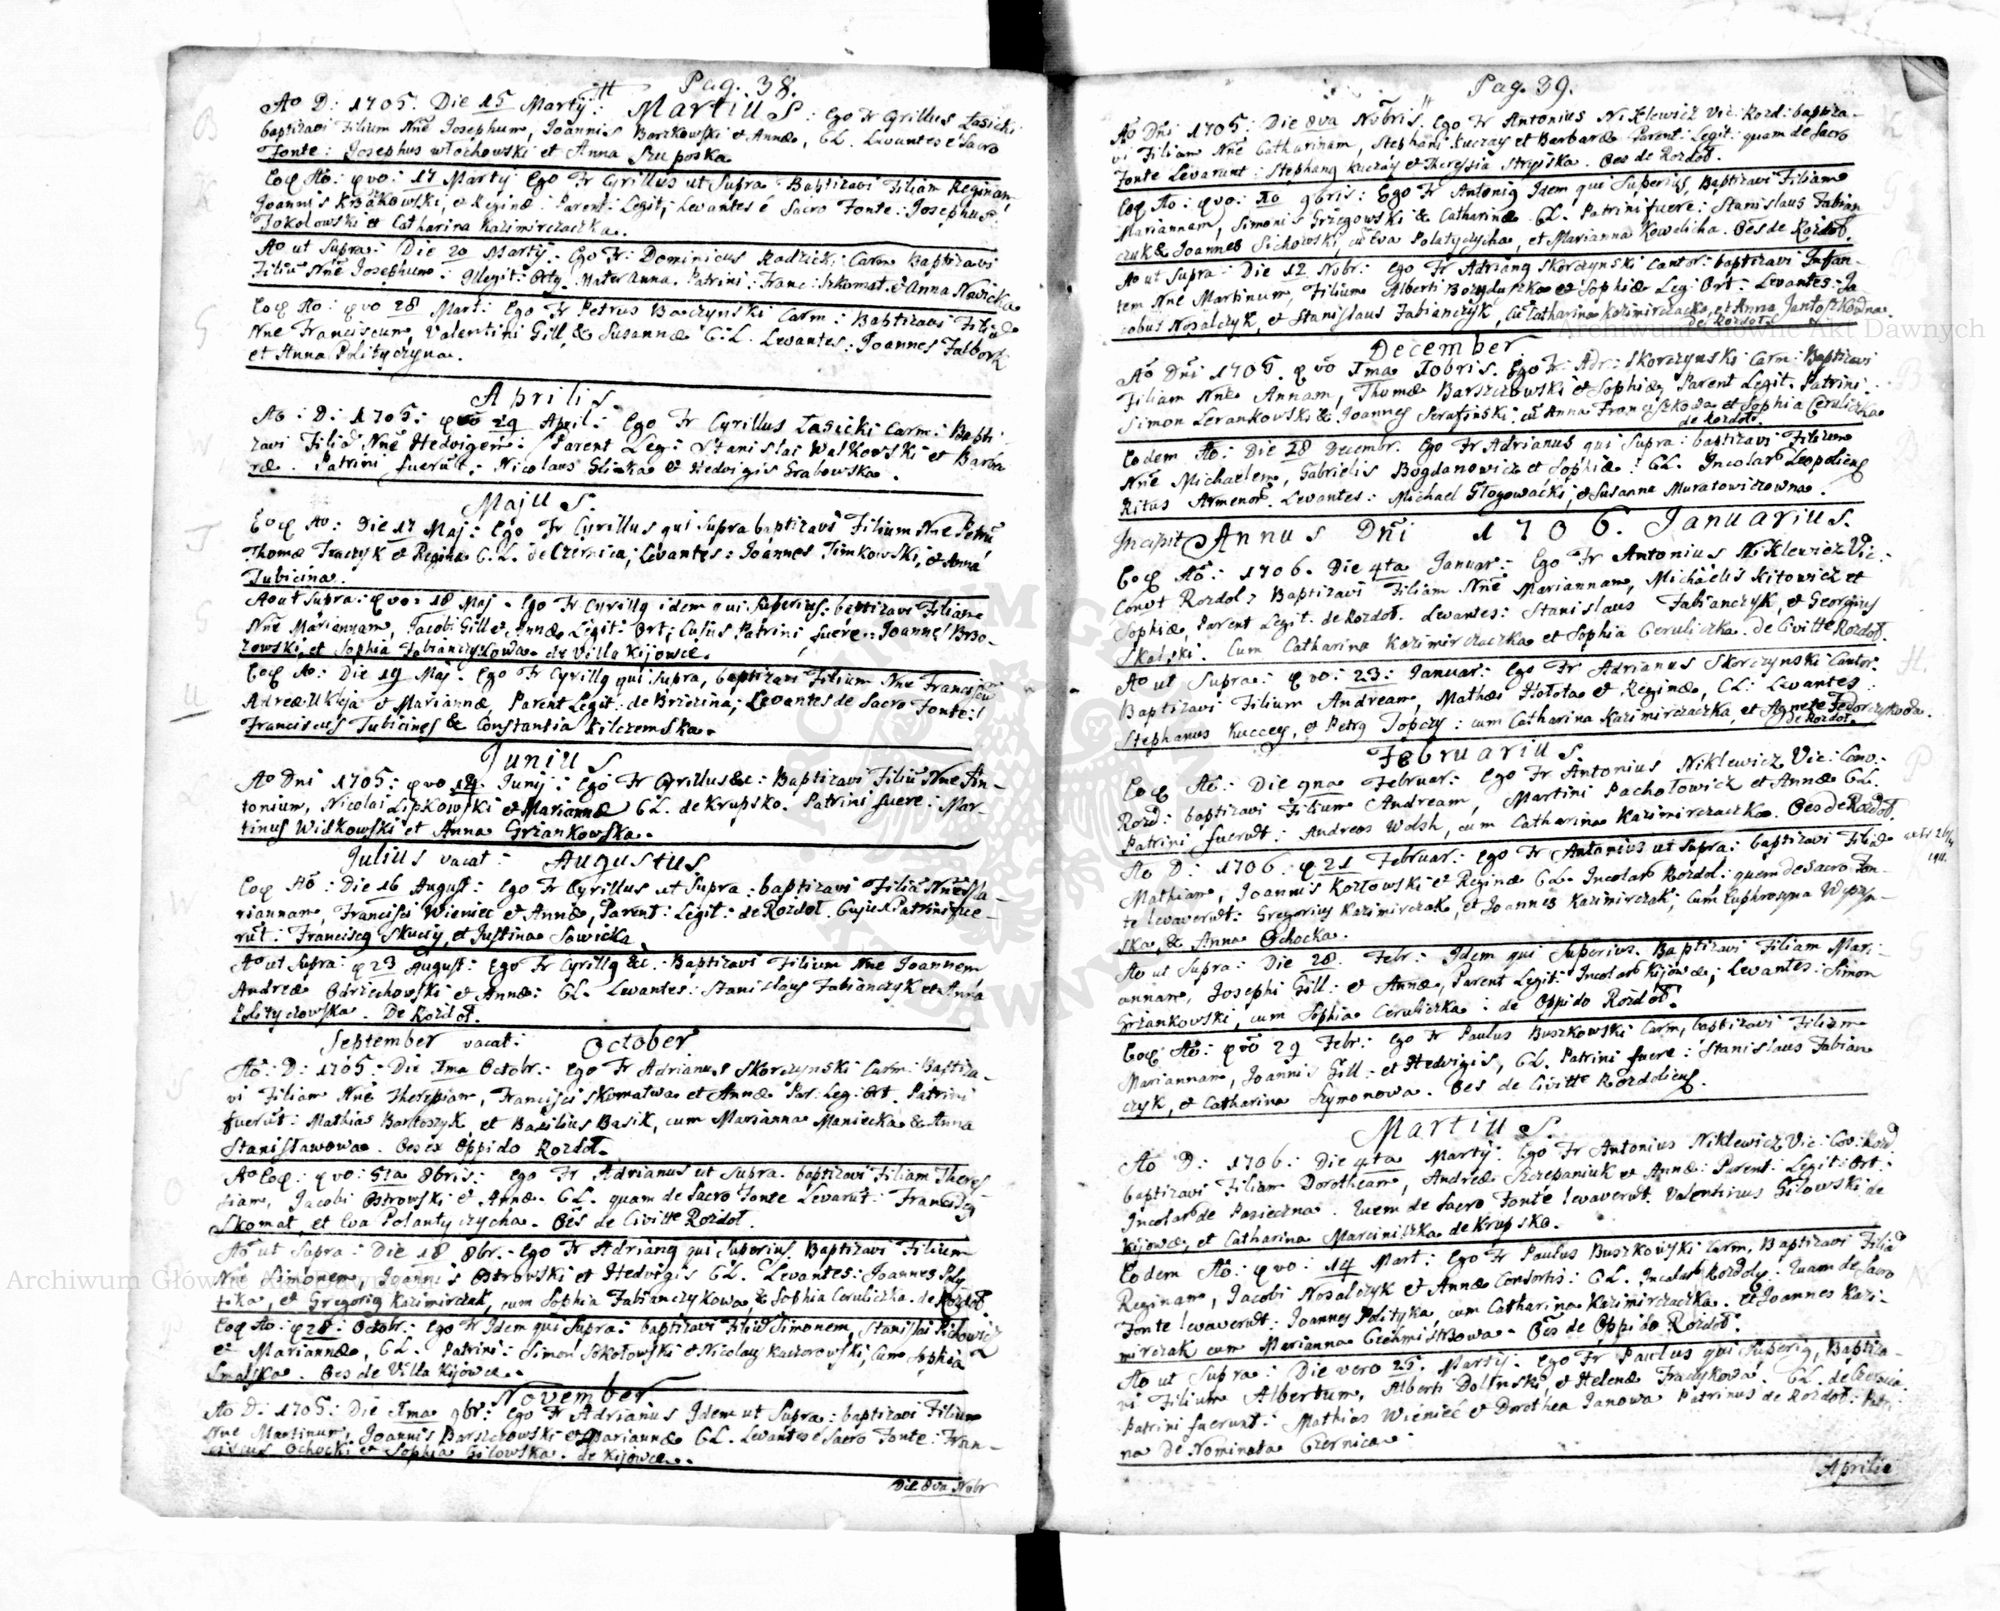 Pag. 38.
Ao D: 1705. Die 15 Martij: Martius: Ego Fr Cyrillus Lasicki
baptizavi Filium Nne Josephum, Joannis Borzkowski et Annæ, CL. Levantes e Sacro
Fonte: Josephus Włochowski et Anna
Eoq Ao: qvo: 17 Martij Ego Fr Cyrillus ut Supra Baptizavi Filiam Reginam,
Joannis et Reginæ: Parent: Legit; Levantes é Sacro Fonte: Josephus
Sokolowski et Catharina Kazimirczaczka.
Ao ut Supra: Die 20 Martij: Ego Fr: Dominicus Radzicki Carm Baptizavi
Filiu Nne Josephum: Illegit: Orty. Mater Anna. Patrini: Franc: Szkomat. & Anna Nowicka
Eoq Ao: qvo 28 Mart: Ego Fr Petrus Baczynski Carm: Baptizavi Filiū
Nne Franciscum, Valentini Gill & Susannæ C.L. Levantes: Joannes
et Anna Polityczyna.
Aprilis.
Ao: D: 1705: qvo 29 April: Ego Fr Cyrillus Lasicki Carm: Bapti-
zavi Filiā Nne Hedvigem: Parent Leg: Stanislai Walkowski et Barba
ræ. Patrini fuerūt: Nicolaus Glinka & Hedvigis Grabowska.
Majus.
Eoq Ao: Die 17 Maj: Ego Fr Cyrillus qui Supra baptizavi Filium Nne Petrū
Thomæ Traczyk & Reginæ C.L. de Czernica; Levantes: Joannes Timkowski, & Anna
Tubicina.
Ao ut Supra: qvo: 18 Maj. Ego Fr Cyrillq idem qui Superius: baptizavi Filiam
Nne Mariannam, Jacobi Gill & Annæ Legit: Ort; Cujus Patrini fuere: Joannes Brzo-
zowski, et Sophia Fabianczykowa de Villa Kijowce.
Eoq Ao: Die 19 Maj. Ego Fr Cyrillq qui Supra, baptizavi Filium Nne Franciscū
Andreæ Ukleja & Mariannæ, Parent Legit: de Brzezina; Levantes de Sacro Fonte:
Franciscus Tubicines & Constantia Kilczemska.
Junius
Ao Dni 1705: qvo 14. Junij: Ego Fr Cyrillus &c: Baptizavi Filiū Nne An-
tonium, Nicolai Lipkowski & Mariannæ CL. de Krupsko. Patrini fuere: Mar-
tinus Wilkowski et Anna Grzankowska.
Julius vacat: Augustus
Eoq Ao: Die 16 August: Ego Fr Cyrillus ut Supra: baptizavi Filiā Nne Ma-
riannam, Francisci Wieniec & Annæ, Parent: Legit: de Rozdoł. Cujus Patrini fue-
rūt: Franciscq Skuczy, et Justina Sowicka
Ao ut Supra: q 23 August: Ego Fr Cyrillq &c.: Baptizavi Filium Nne Joannem
Andreæ Odrzechowski & Annæ: CL. Levantes: Stanislaus Fabianczyk & Anna
Polityczowska. De Rozdoł.
September vacat: October
Ao: D: 1705: Die Ima Octobr: Ego Fr Adrianus Skorczynski Carm: Baptiza-
vi Filiam Nne Theresiam, Francisci Skomatwa et Annæ Par: Leg: Ort. Patrini
fuerūt: Mathias Bartoszyk, et Basilius Basik, cum Marianna Maniecka & Anna
Stanisławowa. Oes ex Oppido Rozdoł.
Ao Eoq: qvo: 5ta 8bris: Ego Fr Adrianus ut Supra. baptizavi Filiam There-
siam, Jacobi Ostrowski & Annæ. CL. quam de Sacro Fonte Levarūt: Franciscq
Skomat, et Eva Polantyczycha. Oēs de Civitte Rozdoł.
Ao ut Supra: Die 18 8br.: Ego Fr Adrianq qui Superius, Baptizavi Filium
Nne Simonem, Joannis Ostrowski et Hedvigis CL. Levantes: Joannes Poly
tyka, et Gregoriq Kazimirczak, cum Sophia Fabianczykowa, & Sophia Ceruliczka. de Rozdoł.
Eoq Ao: q 28: Octobr: Ego Fr Idem qui Supra: baptizavi Filiū Simonem, Stanislai Richowicz
et Mariannæ, CL. Patrini: Simon Sokołowski & Nicolaus Kaczorowski, Cum Sophia
Smalska. Oes de Villa Kijowce.
November
Ao D: 1705: Die Ima 9br: Ego Fr Adrianus Idem ut Supra: baptizavi Filium
Nne Martinum, Joannis Barszczowski & Mariannæ CL. Levantes e Sacro Fonte: Fran-
ciscus Ochocki & Sophia Gilowska. de Kijowce.
Die 8va Nobr
Pag. 39.
Ao Dni 1705: Die 8va Nobris. Ego Fr Antonius Niklewicz Vic: Rozd: baptiza-
vi Filiam Nne Catharinam, Stephani Kuczay et Barbaræ Parent: Legit: quam de Sacro
Fonte Levarunt: Stephanq Kuczay & Theressia Stryiska. Oes de Rozdoł.
Eoq Ao: qvo: 20 9bris: Ego Fr Antoniq Idem qui Superius, Baptizavi Filiam
Mariannam, Simonis Grzegowski & Catharinæ CL. Patrini fuere: Stanislaus Fabian
czyk & Joannes Sichowski, cū Eva Polatyczycha, et Marianna Kowelicha. Oēs de Rozdoł.
Ao ut Supra: Die 12 Nobr: Ego Fr Adrianq Skorczynski Cantor: baptizavi Infan-
tem Nne Martinum, Filium Alberti Bozyduszka & Sophiæ Leg: Ort: Levantes: Ja
cobus Nosalczyk, et Stanislaus Fabianczyk, cū Catharina Kazimirczacka, et Anna Jantoszkowna.
de Rozdoł.
December
Ao Dni 1705. qvo Ima Xobris. Ego Fr: Adr: Skorczynski Carm: Baptizavi
Filiam Nne Annam, Thomæ Barszczowski & Sophiæ, Parent Legit. Patrini:
Simon Lerankowski & Joannes Serafinski: cū Anna Franciszkowa et Sophia Ceruliczka
de Rozdoł.
Eodem Ao: Die 28 Decembr. Ego Fr Adrianus qui Supra: baptizavi Filium
Nne Michaelem, Gabrielis Bogdanowicz et Sophiæ: CL. Incolar Leopoliens
Ritus Armenor. Levantes: Michael Głogowacki, & Susanna Muratowiczowna.
Incipit Annus Dni 1706. Januarius.
Eoq Ao: 1706. Die 4ta Januar: Ego Fr Antonius Niklewicz Vic:
Convt Rozdol: Baptizavi Filiam Nne Mariannam, Michaelis Kitowicz et
Sophiæ, Parent Legit. de Rozdoł. Levantes: Stanislaus Fabianczyk, & Georgius
Skalski. Cum Catharina Kazimirczaczka et Sophia Ceruliczka. de Civitte Rozdoł.
Ao ut Supra: qvo: 23: Januar: Ego Fr Adrianus Skorczynski Cantor.
Baptizavi Filium Andream, Mathæi Hołota & Reginæ, CL: Levantes:
Stephanus Kuccey, & Petrq Topczy: cum Catharina Kazimirczaczka, et Agnete Fedorczykowa.
de Rozdoł.
Februarius.
Eoq Ao: Die 9na Februar: Ego Fr Antonius Niklewicz Vic: Conv.
Rozd: baptizavi Filium Andream, Martini Pachołowicz et Annæ CL.
Patrini fuerūt: Andreas Wolsh, cum Catharina Kazimirczaczka. Oes de Rozdoł.
Ao D: 1706: q 21 Februar: Ego Fr Antonius ut Supra: baptizavi Filiū
Mathiam, Joannis Kozłowski & Reginæ CL Incolar Rozdol: quem de Sacro Fon-
te levaverūt: Gregorius Kazimirczak, et Joannes Kazimirczak, Cum Euphrosyna
ska, & Anna Ochocka.
Ao ut Supra: Die 28. Febr: Idem qui Superius. Baptizavi Filiam Mari-
annam, Josephi Gill: & Annæ, Parent Legit: Incolar Kijowce; Levantes: Simon
Grzankowski, cum Sophia Ceruliczka: de Oppido Rozdoł.
Eoq Ao: qvo 29 Febr: Ego Fr Paulus Buszkowski Carm, baptizavi Filiam
Mariannam, Joannis Gill: et Hedvigis, CL. Patrini fuere: Stanislaus Fabian
czyk, & Catharina Szymonowa. Oes de Civitte Rozdoliens.
Martius.
Ao D: 1706: Die 4ta Martij: Ego Fr Antonius Niklewicz Vic: Cov: Rozd
baptizavi Filiam Dorotheam, Andreæ Szczepaniuk & Annæ: Parent: Legit: Ort:
Incolar de Pasieczna. Quem de Sacro Fonte levaverūt. Valentinus Gilowski de
Kijowce, et Catharina Marciniszka de Krupsko.
Eodem Ao: qvo: 14 Mart: Ego Fr Paulus Buszkowski Carm, Baptizavi Filiā
Reginam, Jacobi Nosalczyk & Annæ Consortis: CL. Incolar Rozdolq: Quam de Sacro
Fonte levaverūt: Joannes Polityka, cum Catharina Kazimirczaczka. et Joannes Kazi-
mirczak cum Marianna Czehmistrzowa. Oēs de Oppido Rozdoł.
Ao ut Supra: Die vero 25. Martij: Ego Fr Paulus qui Superiq, Baptiza-
vi Filium Albertum, Alberti Dolinski, & Helenæ Traczykowa: CL. de Czernica:
Patrini fuerunt: Mathias Wieniec & Dorothea Janowa Patrinus de Rozdoł: Patri-
na de Nominata Czernica.
Aprilis
Archiwum Główne Akt Dawnych
Archiwum Główne Akt Dawnych